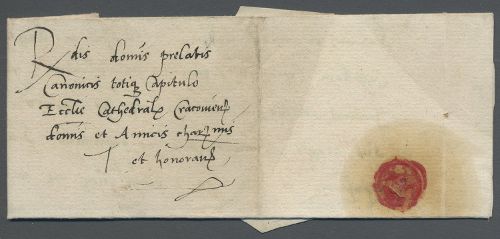 Rdis domis prelatis
Canonicis totiq Capitulo
Ecclie Cathedral Cracovien
domis et Amicis charmis
et honoran